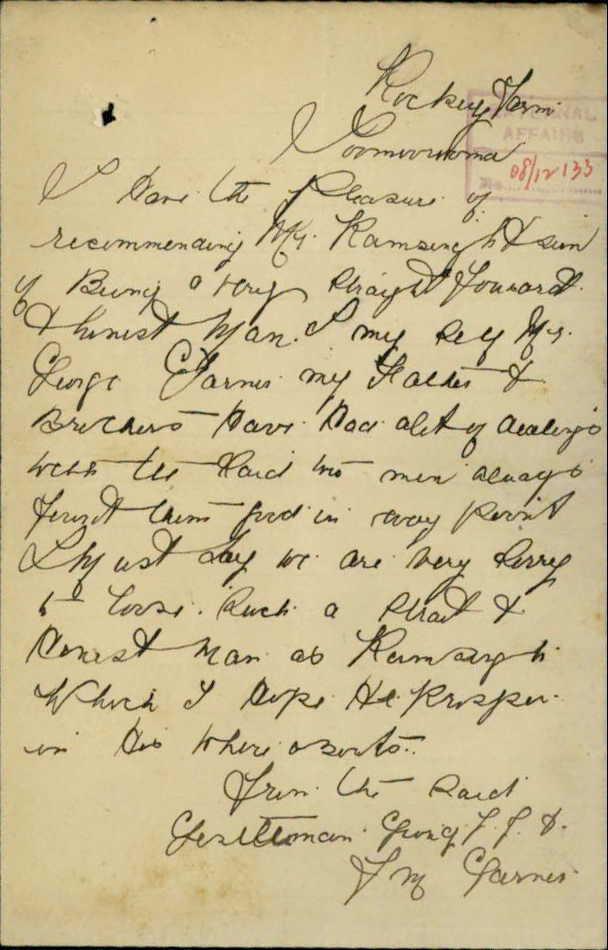 Rockey Farm
EXTERNAL
AFFAIRS
No. 08/12133
I Have the pleasure of
recommending Mr. Ramsingh & sun
of Being a very straight Forward
& honest Man. I my self Mr.
George Garner my Father &
Brothers Have Had alot of dealings
with the Said two men always
found them good in every point
I Must Say we are very Sorry
to loose Such a Strait &
Honest Man as Ramsingh
Which I Hope He Prosper
in His where abouts.
From the Said
Gentleman Georg
J M Garner